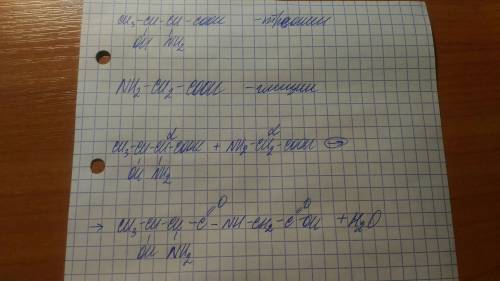 CH₃-CH-CH-COOH - треонин
OH NH₂
NH₂-CH₂-COOH - глицин
α α
CH₃-CH-CH-COOH + NH₂-CH₂-COOH →
OH NH₂
O O
→ CH₃-CH-CH-C-NH-CH₂-C-OH + H₂O
OH NH₂